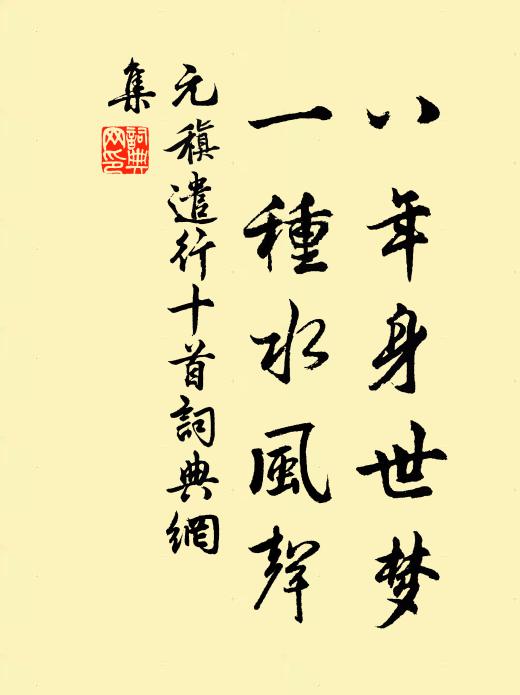 八年身世梦
一種水風聲
元稹遣行十首詞典網
集
詞典
网印